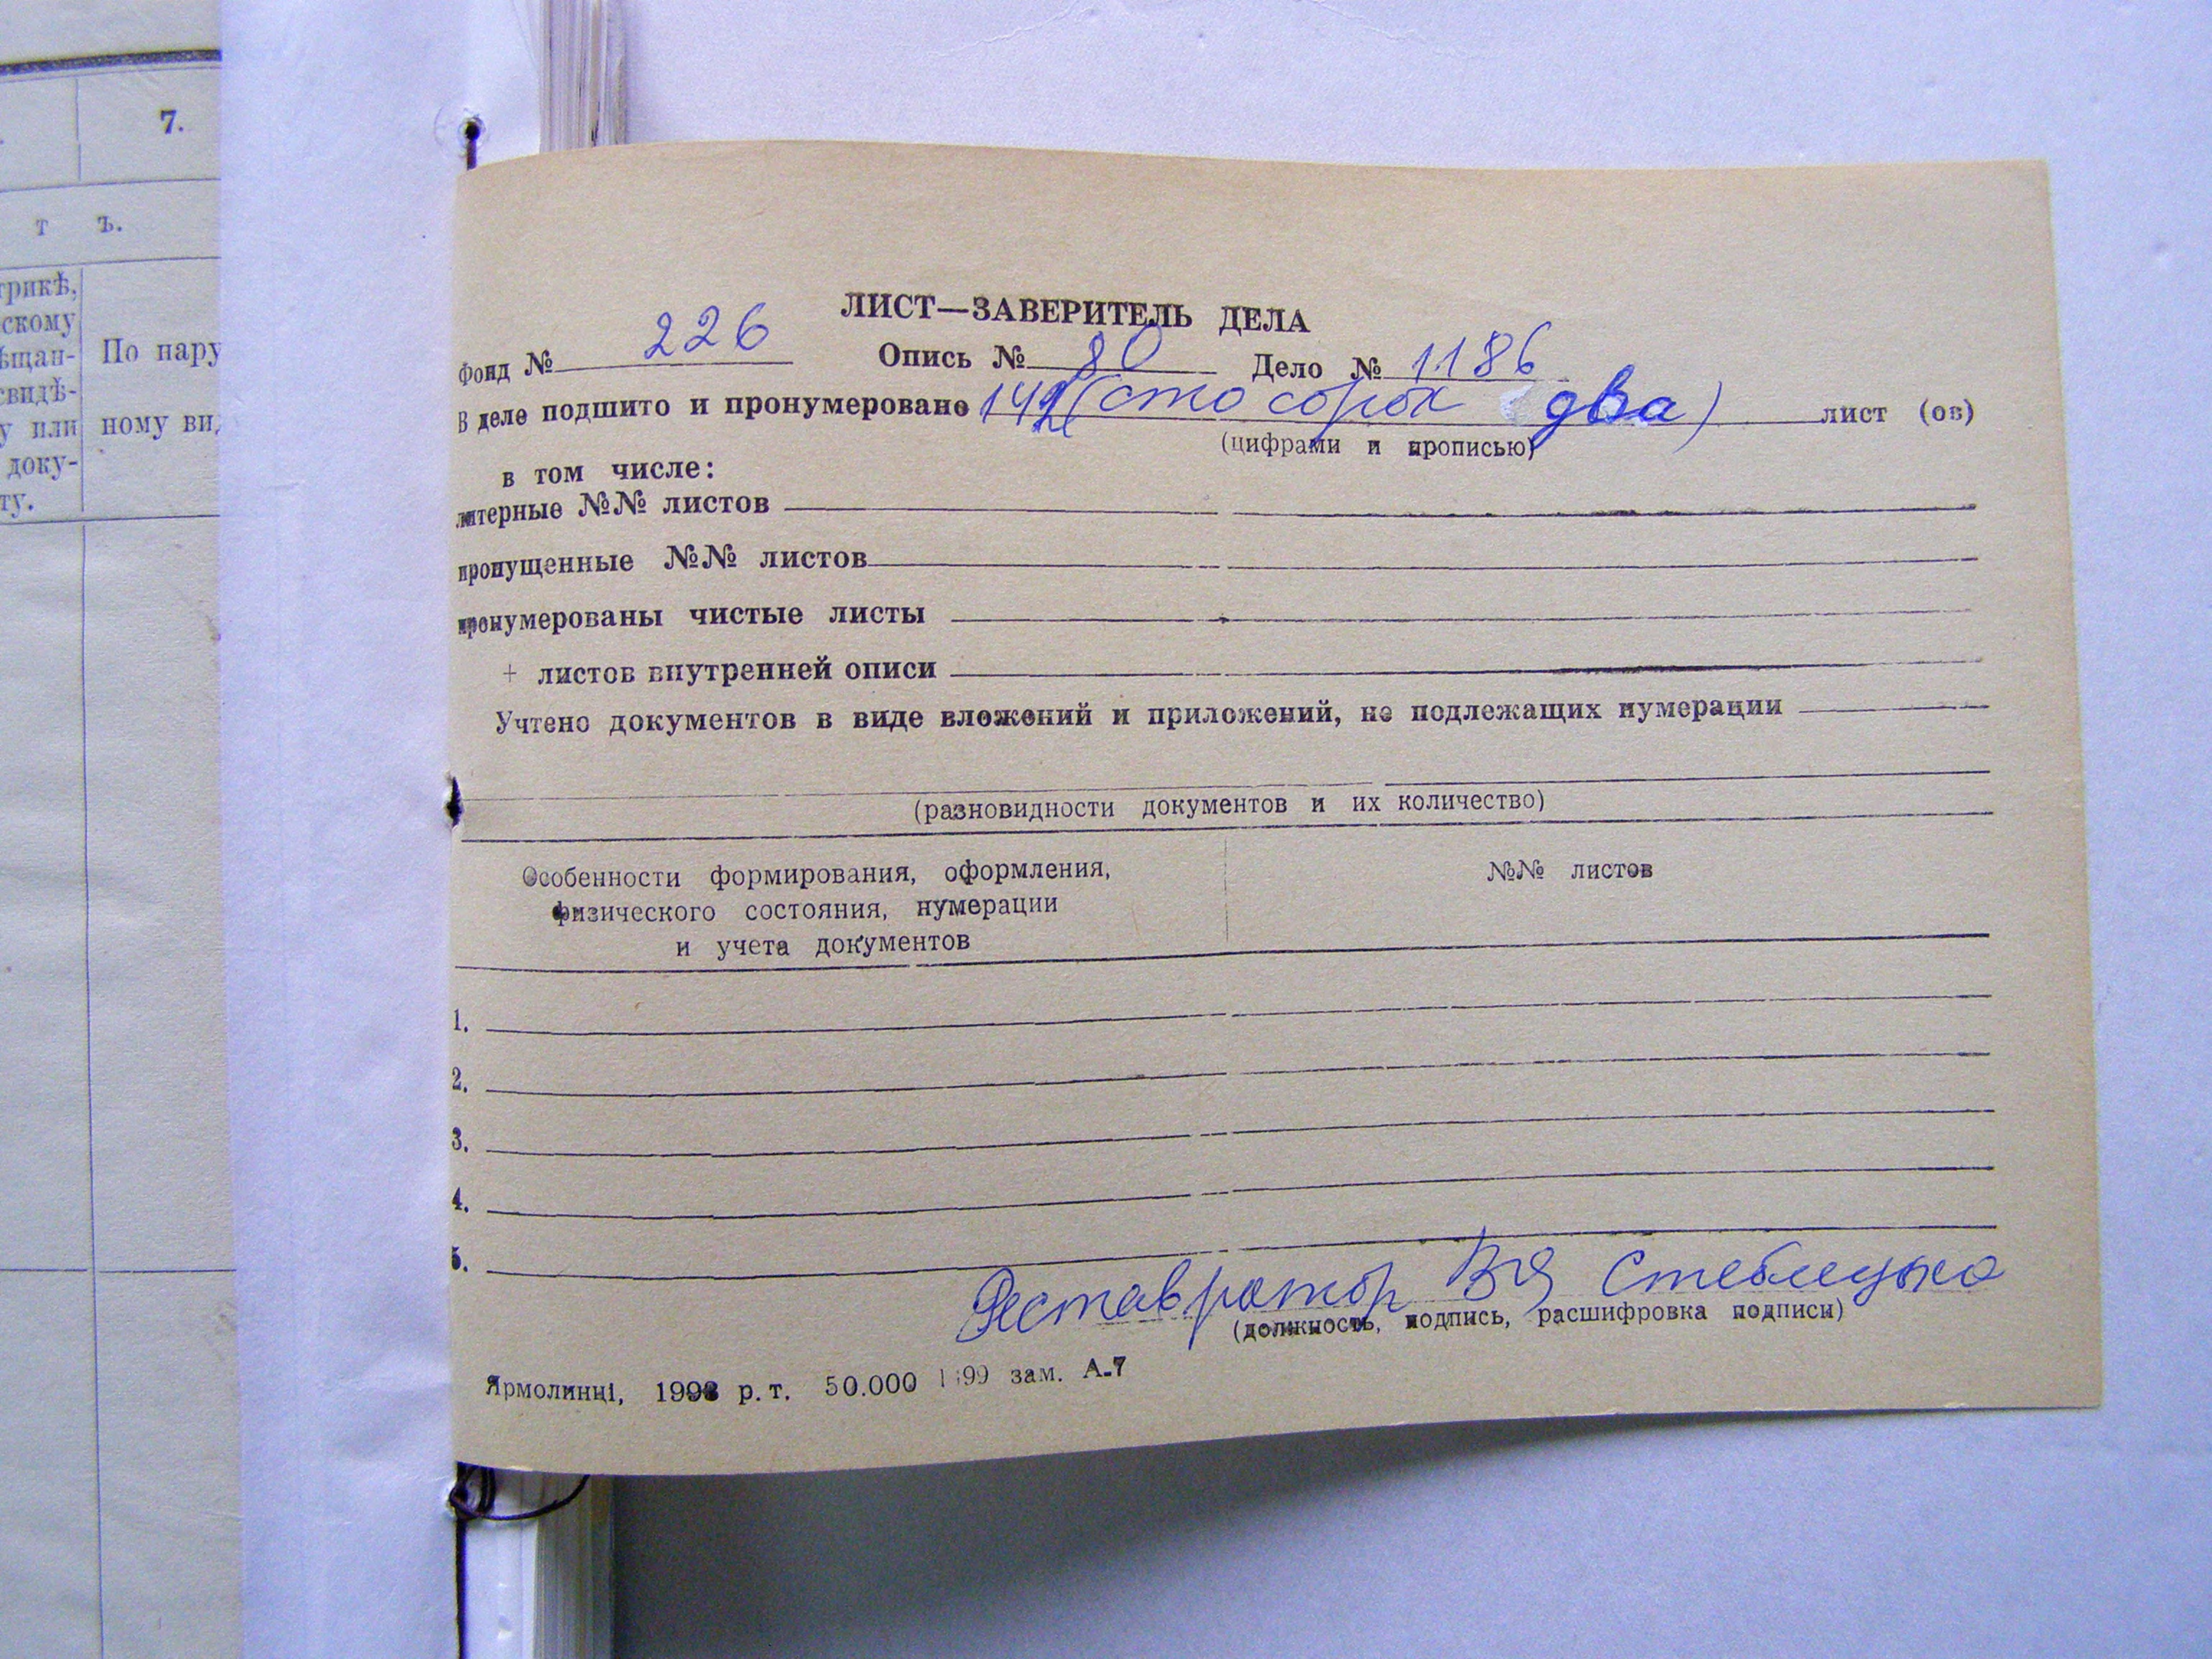 7.
т ъ.
трикѣ,
скому
ѣщан-
свидѣ-
у или
доку-
ту.
По нару
ному ви,
ЛИСТ—ЗАВЕРИТЕЛЬ ДЕЛА
Фонд № 226 Опись № 80 Дело № 1186
В деле подшито и пронумеровано 142 (сто сорок два) лист (ов)
(цифрами и прописью)
в том числе:
литерные №№ листов
пропущенные №№ листов
пронумерованы чистые листы
+ листов внутренней описи
Учтено документов в виде вложений и приложений, не подлежащих нумерации
(разновидности документов и их количество)
Особенности формирования, оформления,
физического состояния, нумерации
и учета документов
№№ листов
1.
2.
3.
4.
5.
Реставратор Стеблецька
(должность, подпись, расшифровка подписи)
Ярмолинці, 1993 р. т. 50.000 зам. А-7